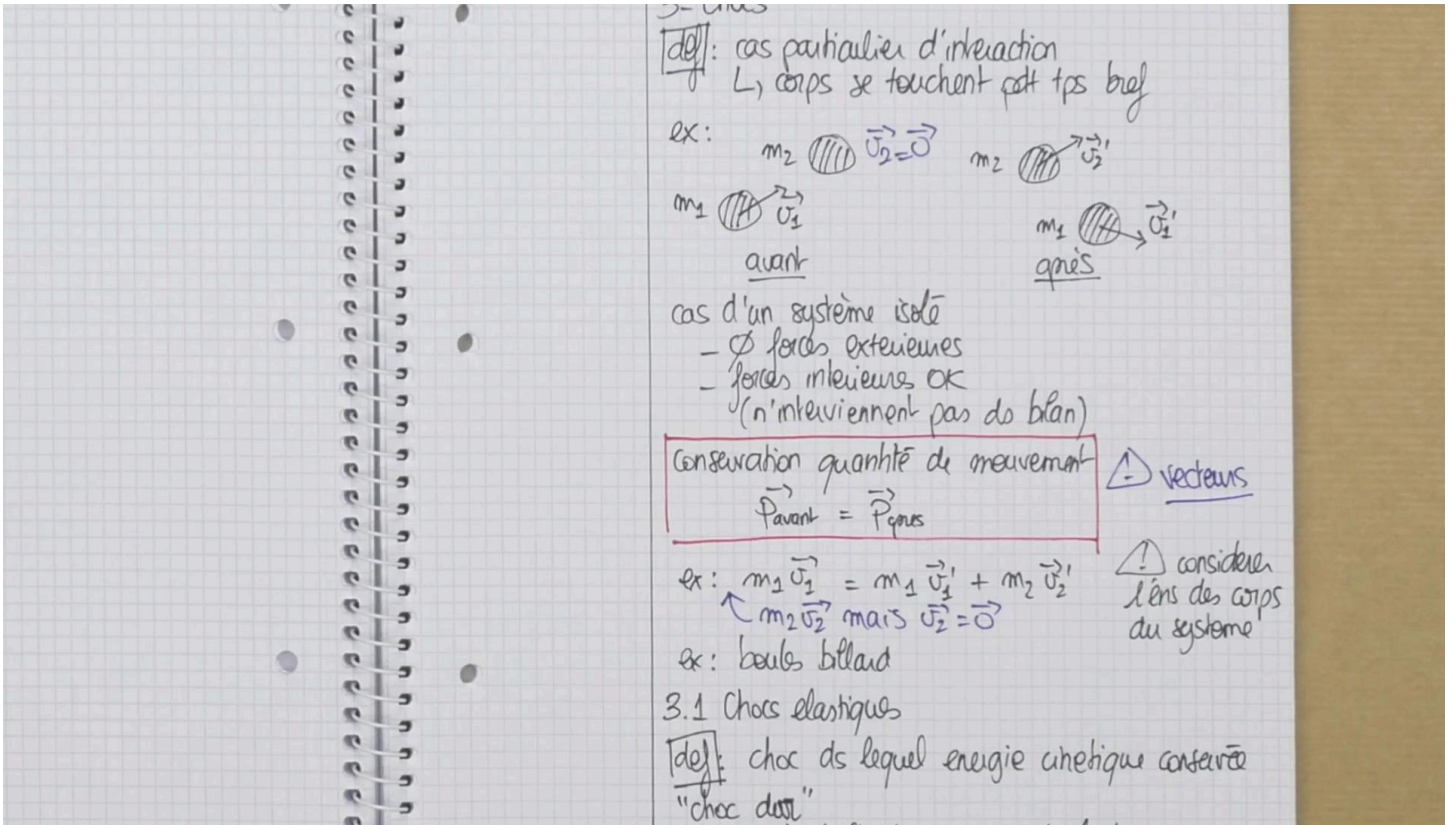 3- Chocs
def: cas particulier d'interaction
↳ corps se touchent pdt tps bref
ex:
m₂ v⃗₂=0⃗ m₂ v⃗₂'
m₁ v⃗₁ m₁ v⃗₁'
avant après
cas d'un système isolé
- ∅ forces exterieures
- forces interieures OK
(n'interviennent pas ds bilan)
Conservation quantité de mouvement ⚠ vecteurs
P⃗avant = P⃗apres
ex: m₁ v⃗₁ = m₁ v⃗₁' + m₂ v⃗₂'
m₂ v⃗₂ mais v⃗₂ = 0⃗
⚠ considerer
l'ens des corps
du systeme
ex: boules billard
3.1 Chocs elastiques
def: choc ds lequel energie cinetique conservée
"choc dur"